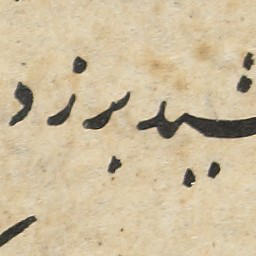 شید برزد